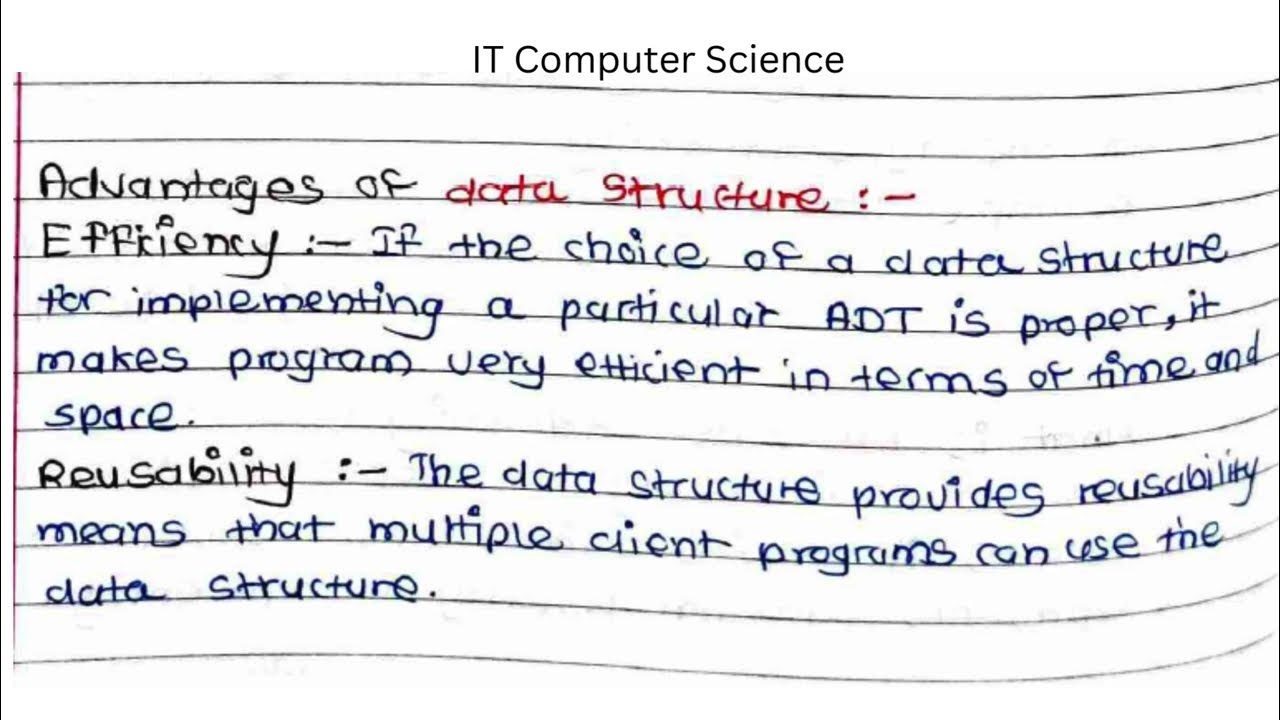 IT Computer Science
Advantages of data structure :-
Efficiency :- If the choice of a data structure
for implementing a particular ADT is proper, it
makes program very efficient in terms of time and
space.
Reusability :- The data structure provides reusability
means that multiple client programs can use the
data structure.